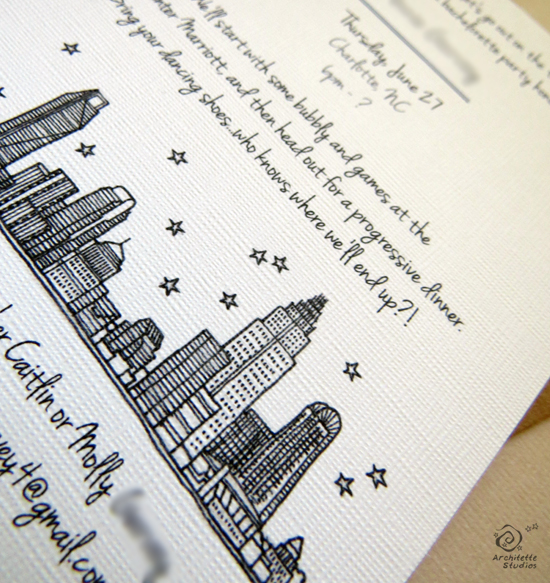 let's go out on the
bachelorette party
Thursday, June 27
Charlotte, NC
6pm - ?
We'll start with some bubbly and games at the
Marriott, and then head out for a progressive dinner.
bring your dancing shoes...who knows where we'll end up?!
Caitlin or Molly
vey4@gmail.com
Architette
Studios